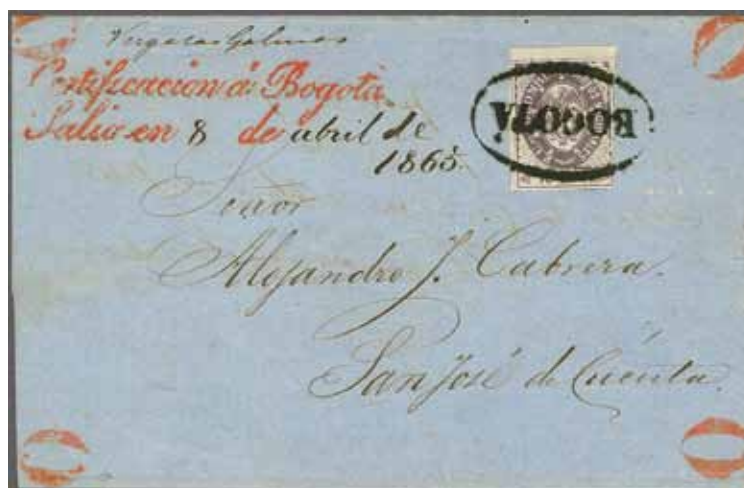 Certificacion á Bogotá
Salio en 8 de abril de
1865.
BOGOTÁ
Señor
Alejandro J. Cabrera.
San José de Cúcuta.